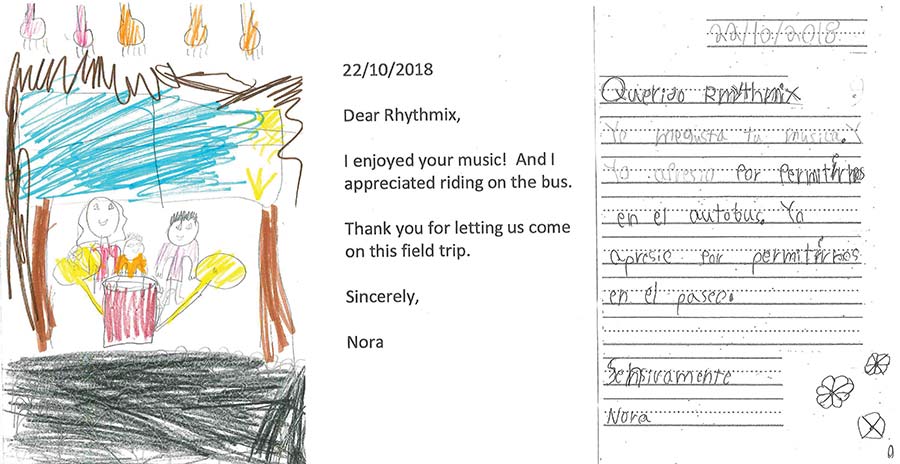 22/10/2018
Dear Rhythmix,
I enjoyed your music!  And I
appreciated riding on the bus.
Thank you for letting us come
on this field trip.
Sincerely,
Nora
22/10/2018
Querido Rhythmix
Yo megusta tu musica. Y
Yo apresio Por Permitirnos
en el autobus. Yo
apresie por permitirnos
en el paseo.
Sensivamente
Nora